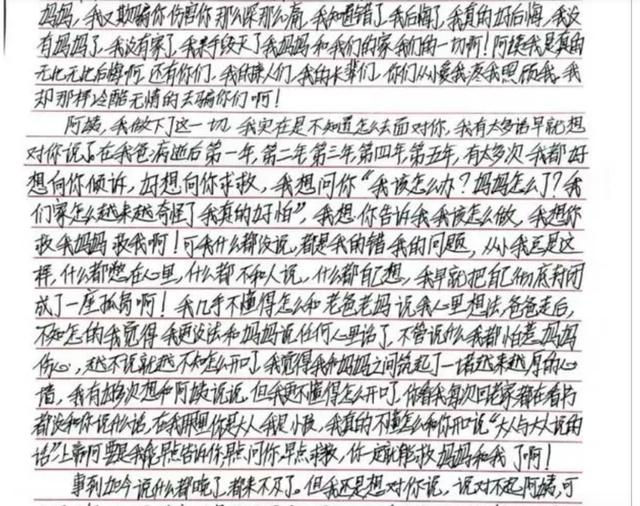 妈妈，我又欺骗你伤害你那么深那么痛，我知道错了，我后悔了，我真的好后悔，我没
有妈妈了，我没有家了，我亲手毁灭了我妈妈和我们的家我们的一切啊！阿姨我是真的
无比无比后悔啊，还有你们，我的亲人们，我的长辈们，你们从小爱我疼我照顾我，我
却那样冷酷无情的去骗你们啊！
阿姨，我做下了这一切，我实在是不知道怎么去面对你，我有太多话早就想
对你说了。在我爸病逝后第一年，第二年第三年第四年第五年，有太多次我都好
想向你倾诉，好想向你求救，我想问你“我该怎么办？妈妈怎么了？我
们家怎么越来越奇怪了我真的好怕”，我想你告诉我我该怎么做，我想你
救我妈妈救我啊！可我什么都没说，都是我的错我的问题，从小我总是这
样，什么都憋在心里，什么都不和人说，什么都自己想，我早就把自己彻底封闭
成了一座孤岛啊！我几乎不懂得怎么和老爸老妈说我心里想法，爸爸走后，
不知怎的我觉得我更没法和妈妈说任何心里话了，不管说什么我都怕惹妈妈
伤心，越不说就越不知怎么开口了，我觉得我和妈妈之间筑起了一堵越来越厚的心
墙，我有好多次想和阿姨说说，但我更不懂得怎么开口了，你看我每次回老家都在看书
都没和你说什么话，在我那里你是大人我是小孩，我真的不懂怎么和你开口说“大人与大人说的
话”上啊阿要是我能早点告诉你，早点问你，早点求救，你一定就能救妈妈和我了啊！
事到如今说什么都晚了，都来不及了。但我还是想对你说，说对不起阿姨，可